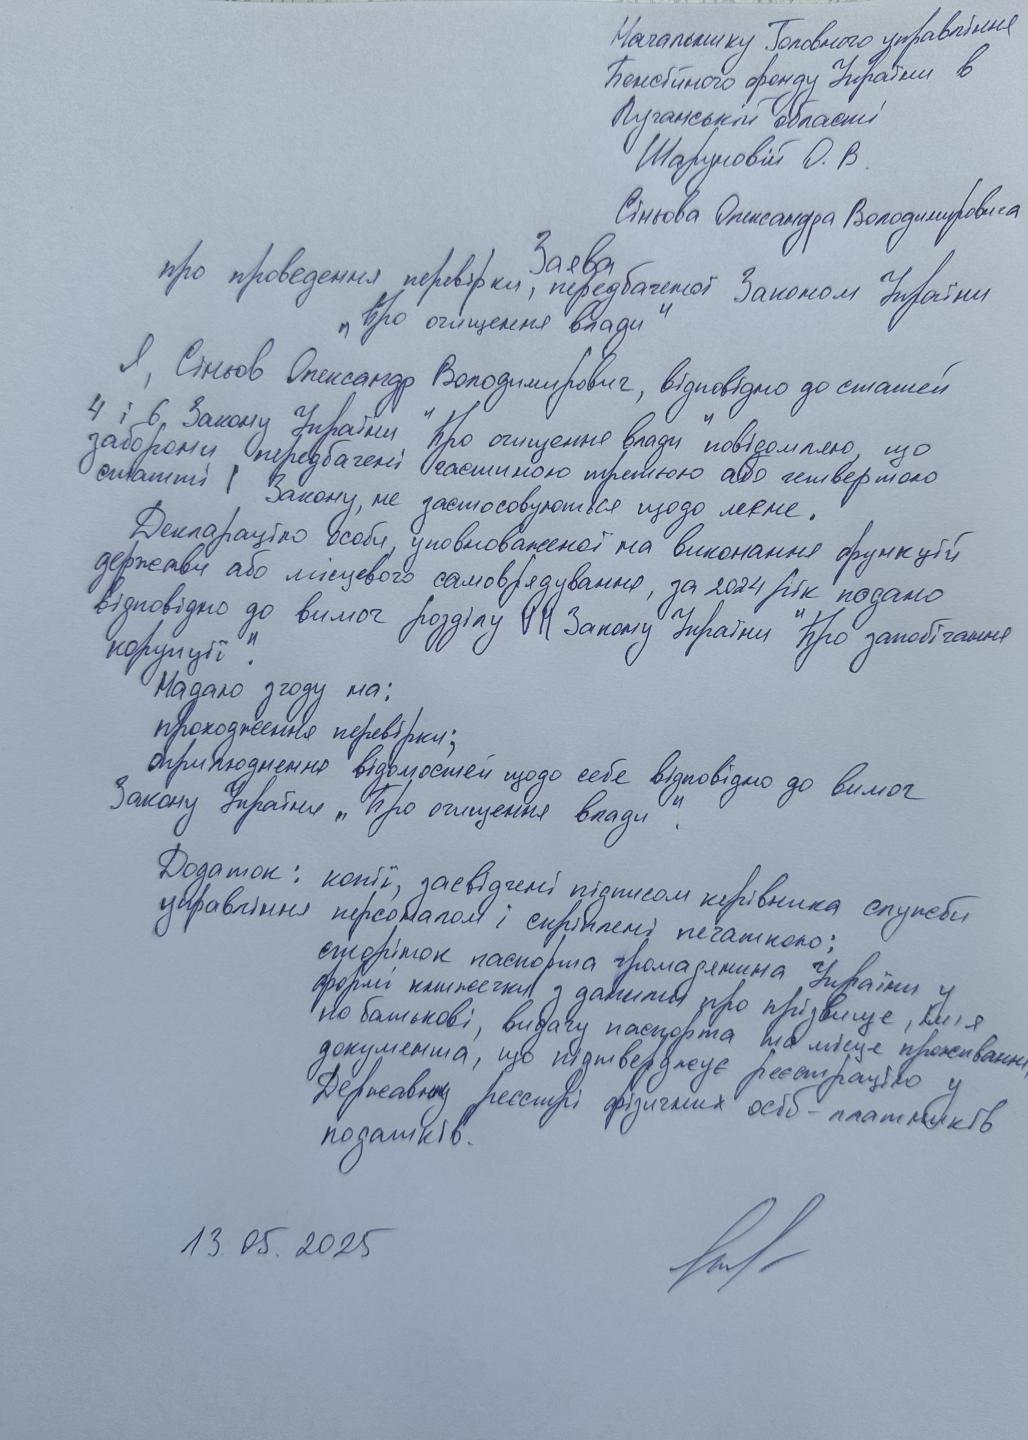 Начальнику Головного управління
Пенсійного фонду України в
Луганській області
Шаруновій О. В.
Сіньова Олександра Володимировича
Заява
про проведення перевірки, передбаченої Законом України
„Про очищення влади"
Я, Сіньов Олександр Володимирович, відповідно до статей
4 і 6 Закону України "Про очищення влади" повідомляю, що
заборони передбачені частиною третьою або четвертою
статті 1 Закону, не застосовуються щодо мене.
Декларацію особи, уповноваженої на виконання функцій
держави або місцевого самоврядування, за 2024 рік подано
відповідно до вимог розділу VII Закону України "Про запобігання
корупції".
Надаю згоду на:
проходження перевірки;
оприлюднення відомостей щодо себе відповідно до вимог
Закону України „Про очищення влади".
Додаток: копії, засвідчені підписом керівника служби
управління персоналом і скріплені печаткою:
сторінок паспорта громадянина України у
формі книжечки з даними про прізвище, ім'я
по батькові, видачу паспорта та місце проживання,
документа, що підтверджує реєстрацію у
Державному реєстрі фізичних осіб-платників
податків.
13.05.2025